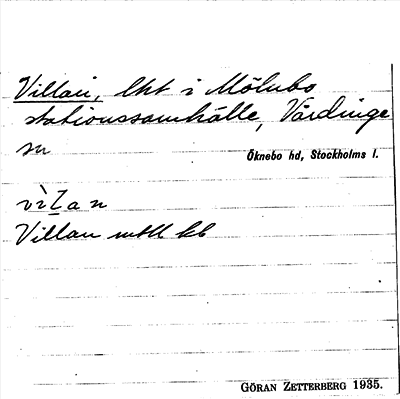 Villan, lht i Mölnbo
stationssamhälle, Vårdinge
sn Öknebo hd, Stockholms l.
vìlan
Villan
GÖRAN ZETTERBERG 1935.